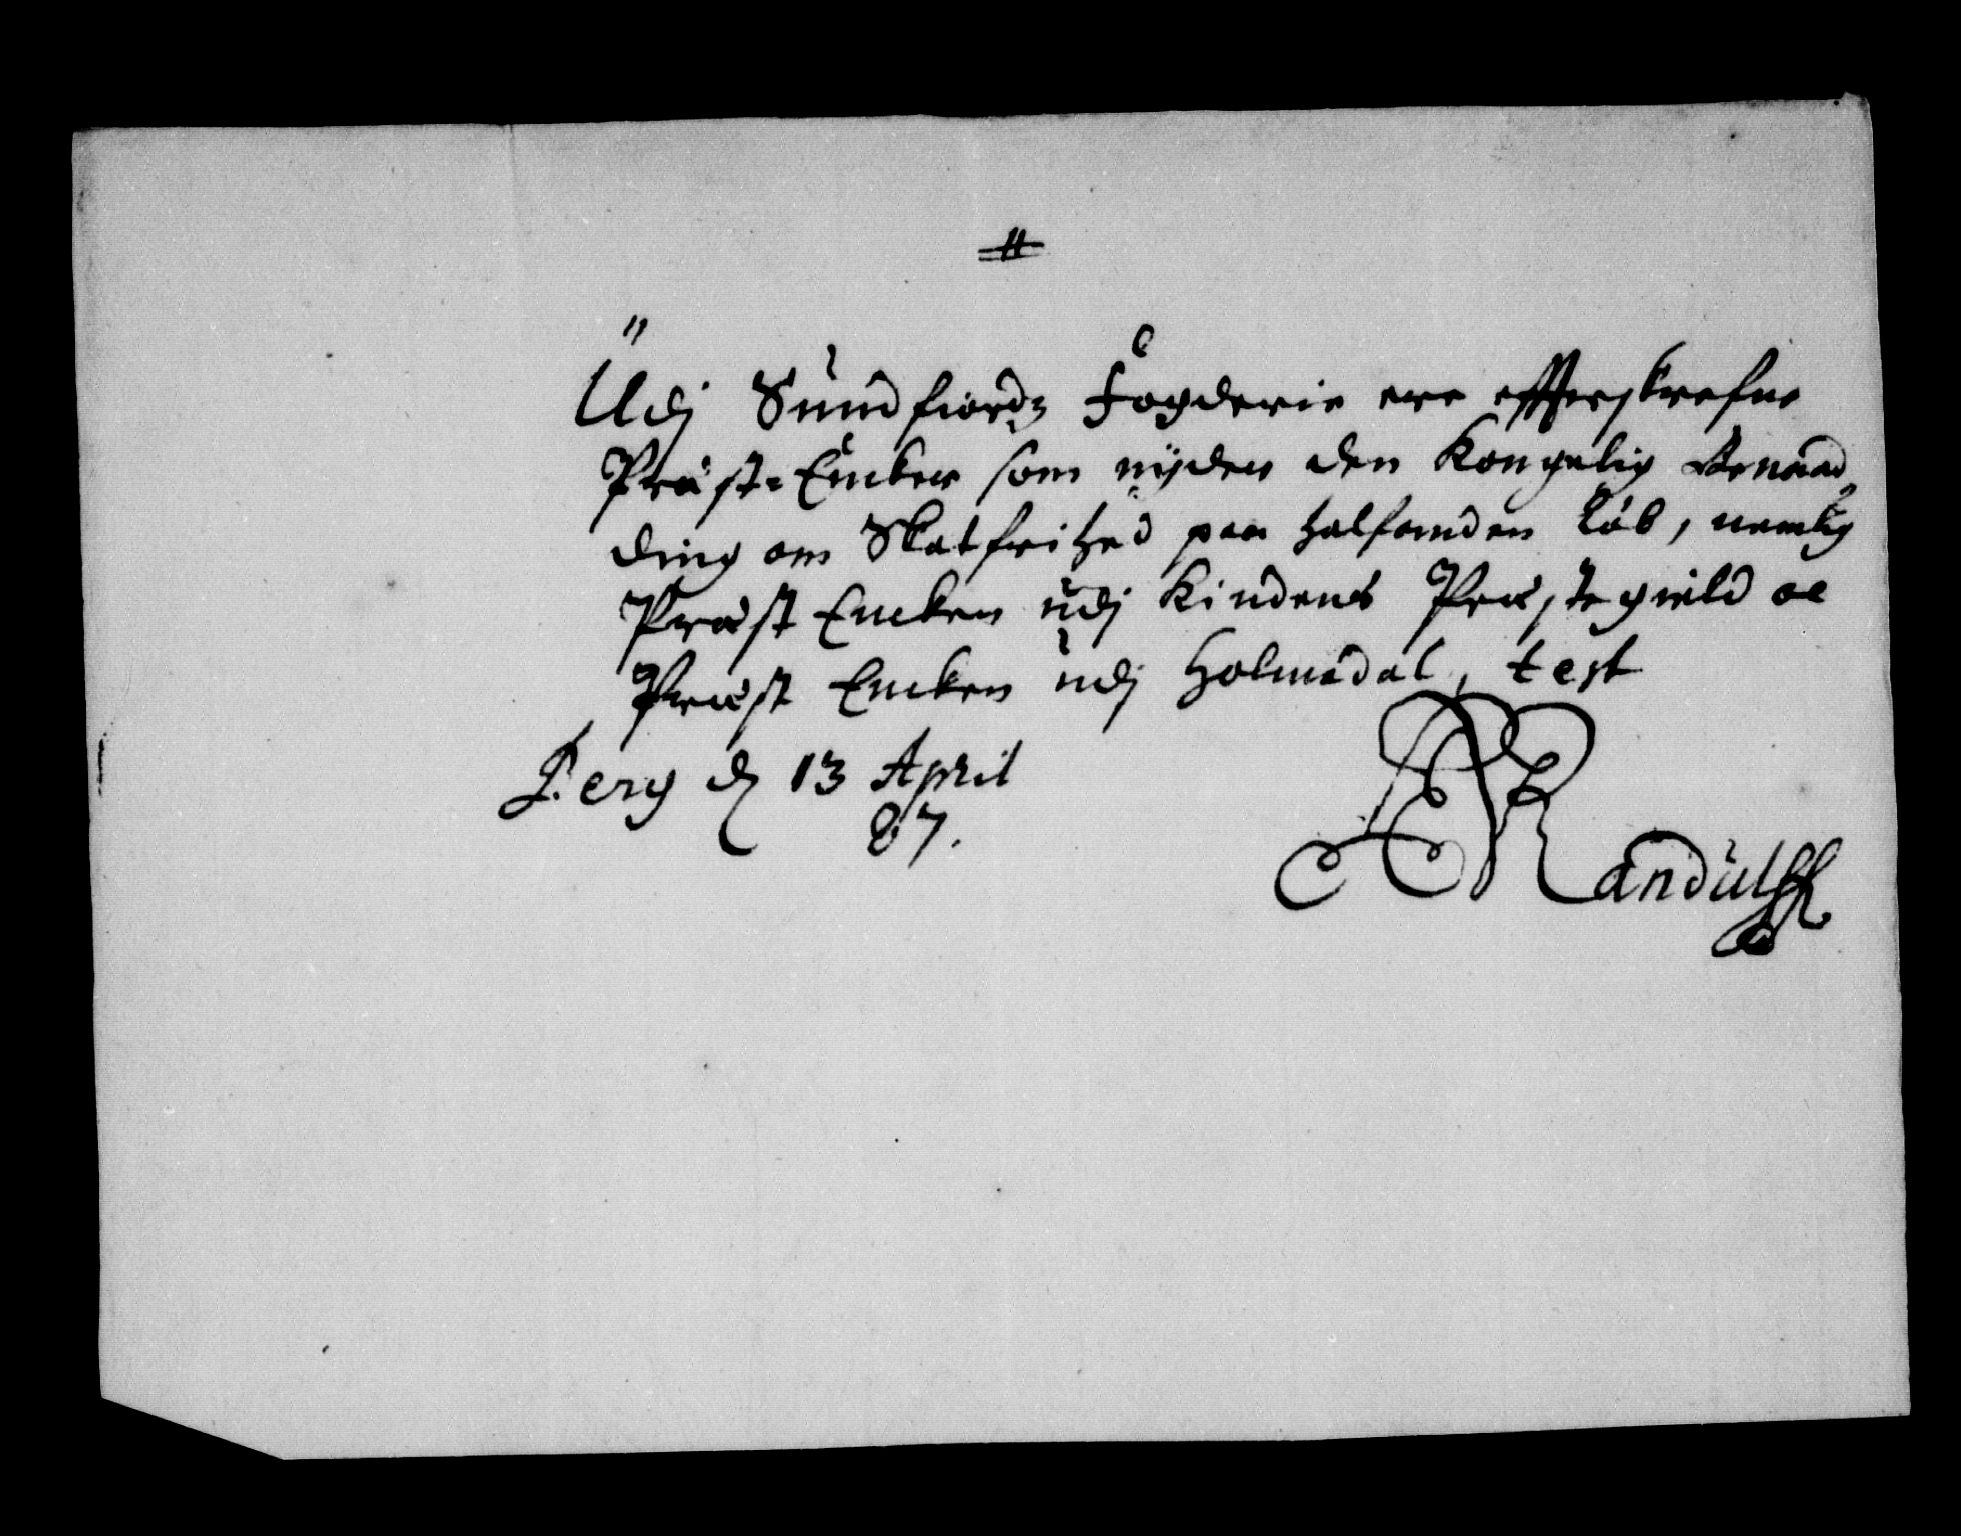 Udj Sundfiordz Fogderie ere effterskrefne
Præste-Encker som nyder den Kongelig Benaad
ding om Skatfrihed paa halfanden Løb, nemlig
Præst Encken udj Kindens Præstegield oc
Præst Encken udj Holmedal, test
Berg d 13 April
87.
Randulff